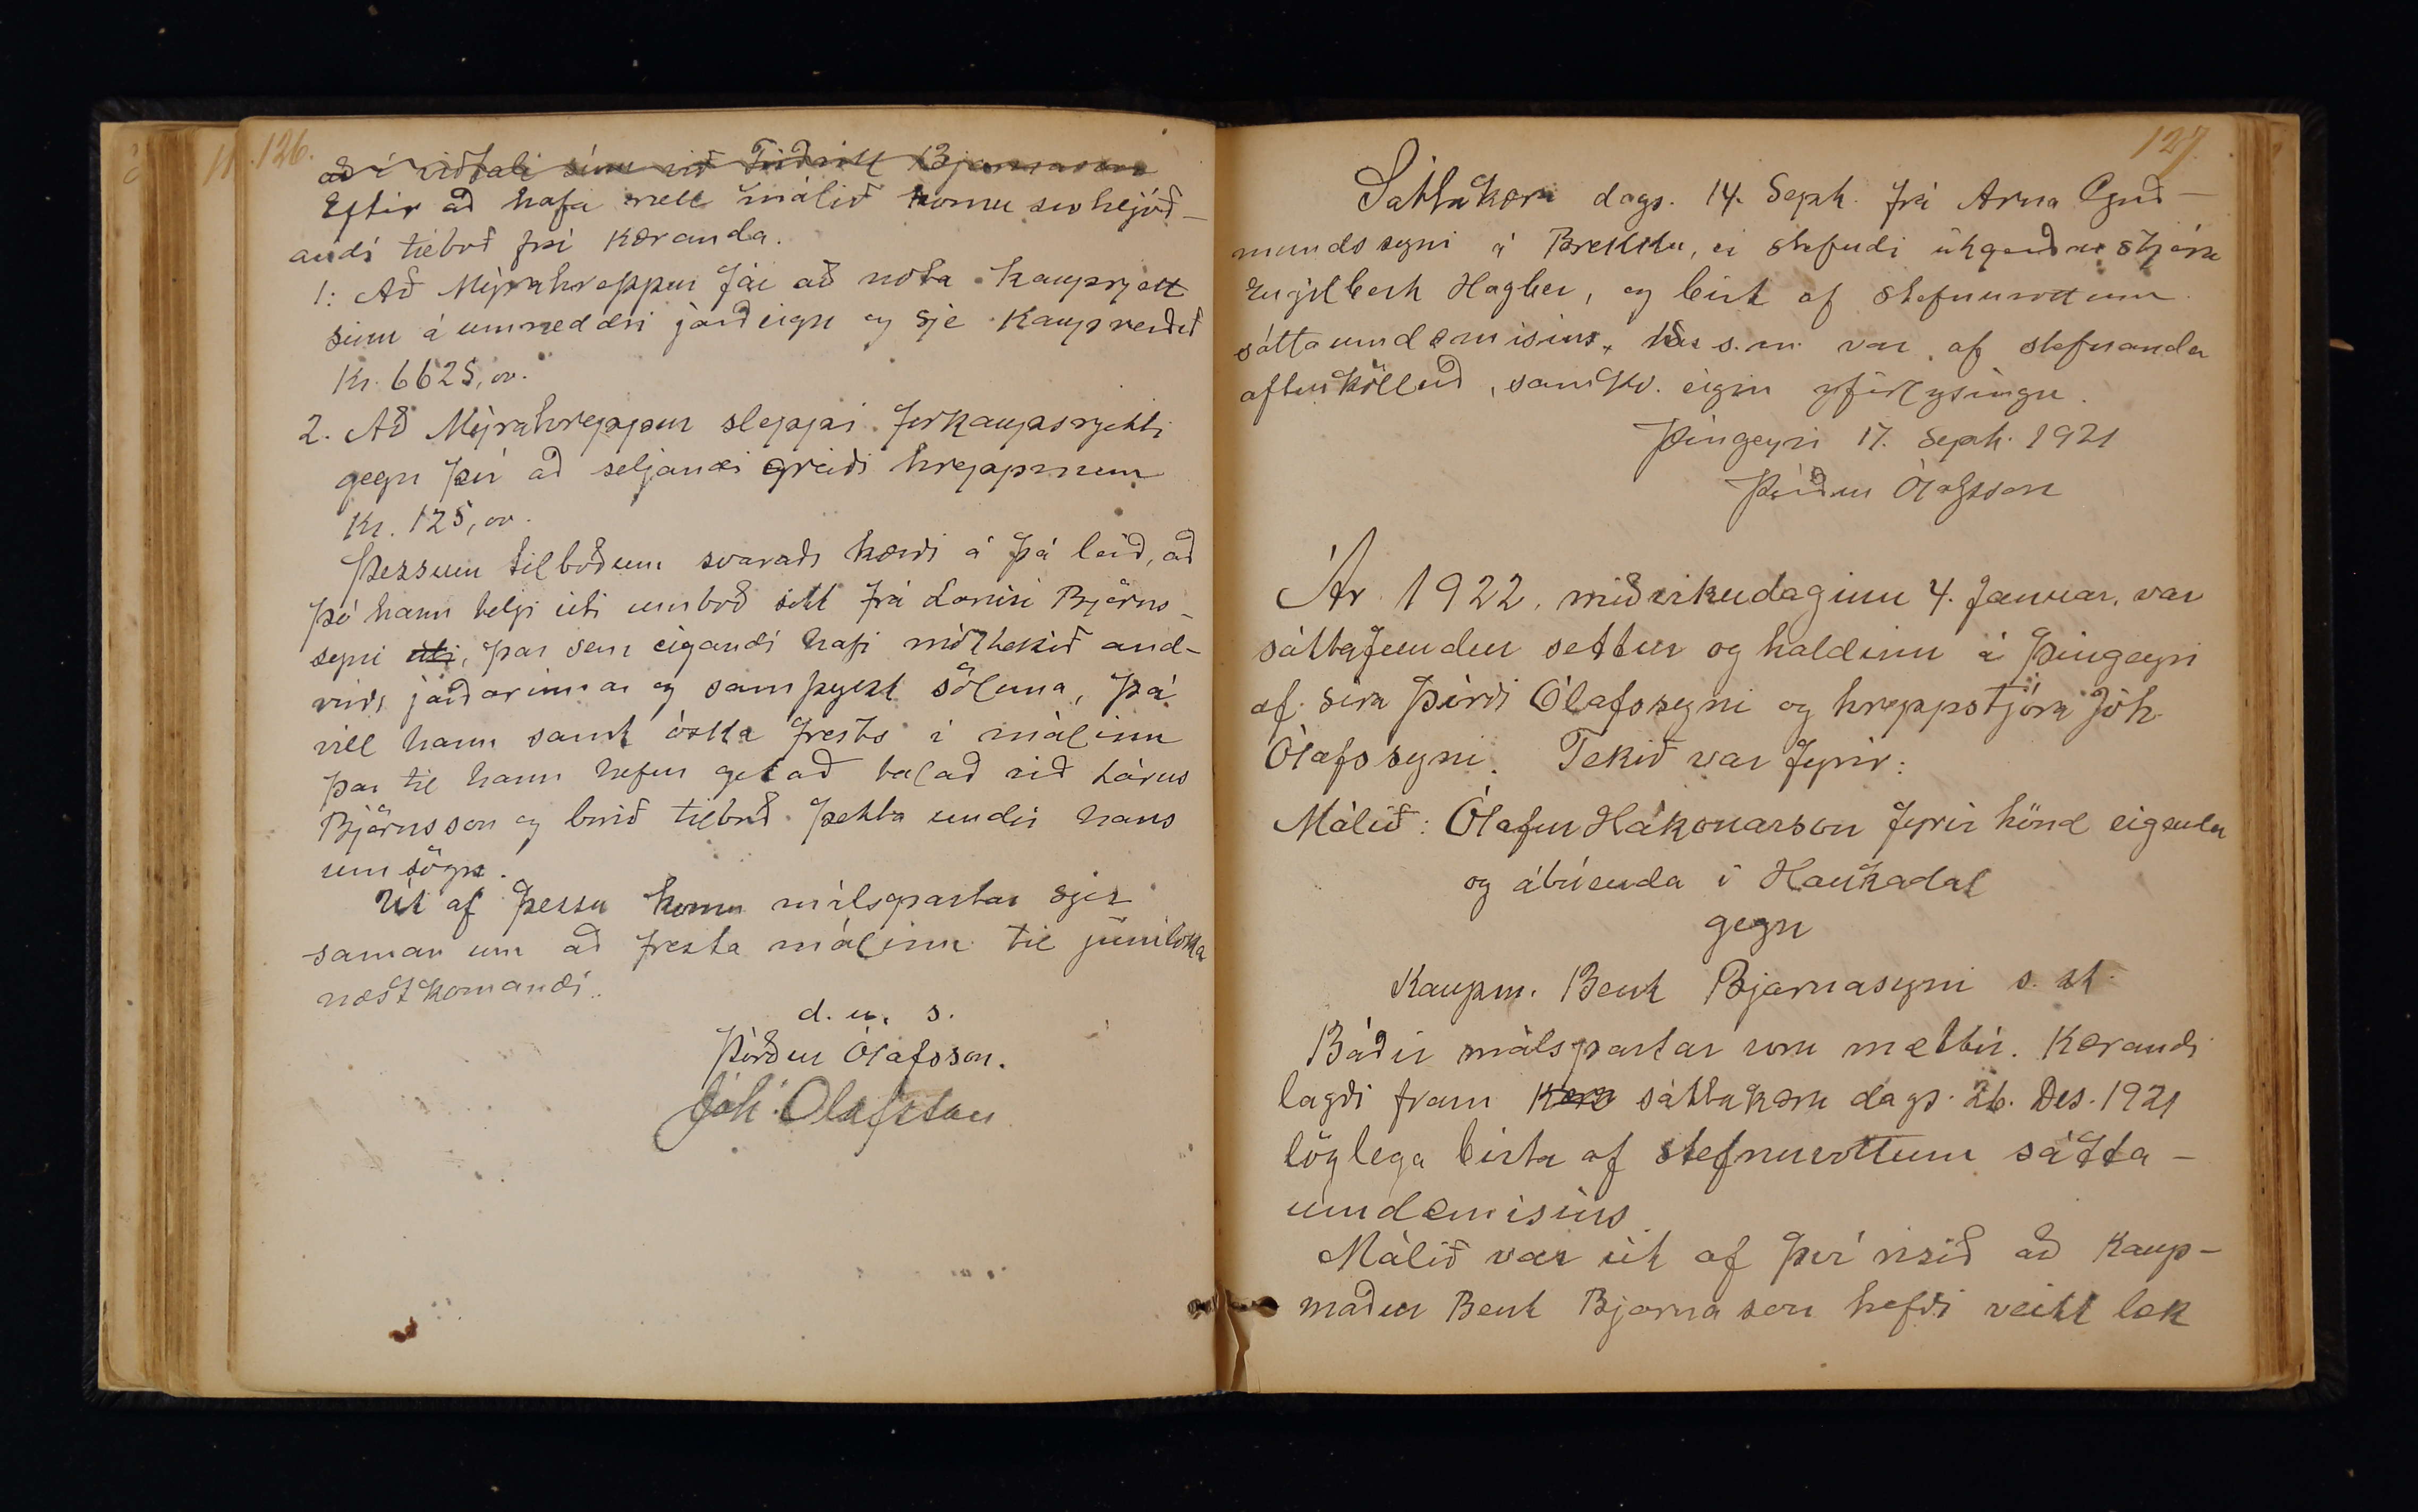 126.
að í viðtali sínu við Friðrik Bjarnason
Eftir að hafa rætt málið komu svohljóð-
andi tilboð frá kæranda.
1: Að Mýrahreppur fái að nota kauprjett
sinn á umræddri jarðeign og sje kaupverðið
Kr. 6625,oo.
2. Að Mýrahreppur sleppi forkaupsrjetti
gegn því að seljandi greiði hreppnum
Kr. 125,oo.
Þessum tilboðum svaraði kærði á þá leið, að
þó hann telji úti umboð sitt frá Lárusi Björns-
syni úti, þar sem eigandi hafi móttekið and-
virði jarðarinnar og samþykt söluna, þá
vill hann samt óska frests í málinu
þar til hann hefur getað talað við Lárus
Björnsson og borið tilboð þetta undir hans
umsögn.
Út af þessu komu málspartar sjer
saman um að fresta málinu til júníloka
næstkomandi.
d. u. s.
Þórður Ólafsson.
Jóh. Ólafsson
127.
Sáttakæra dags. 14. Sept. frá Arna Guð-
mundssyni á Brekku, er stefndi útgerðarstjóra
Engilbert Hagber, og birt af stefnuvottum
sáttaumdæmisins, s.m. var af stefnanda
afturkölluð, samkv. eigin yfirlýsingu.
Þingeyri 17. Sept. 1921
Þórður Ólafsson
Ár 1922, miðvikudaginn 4. Januar, var
sáttafundur settur og haldinn á Þingeyri
af síra Þórði Ólafssyni og hreppstjóra Jóh.
Ólafssyni. Tekið var fyrir:
Málið: Ólafur Hákonarson fyrir hönd eigenda
og ábúenda í Haukadal
gegn
Kaupm. Bent Bjarnasyni s. st.
Báðir málspartar voru mættir. Kærandi
lagði fram kæru sáttakæru dags. 26. Des. 1921
löglega birta af stefnuvottum sátta-
umdæmisins.
Málið var út af því risið að kaup-
maður Bent Bjarnason hefði veitt læk